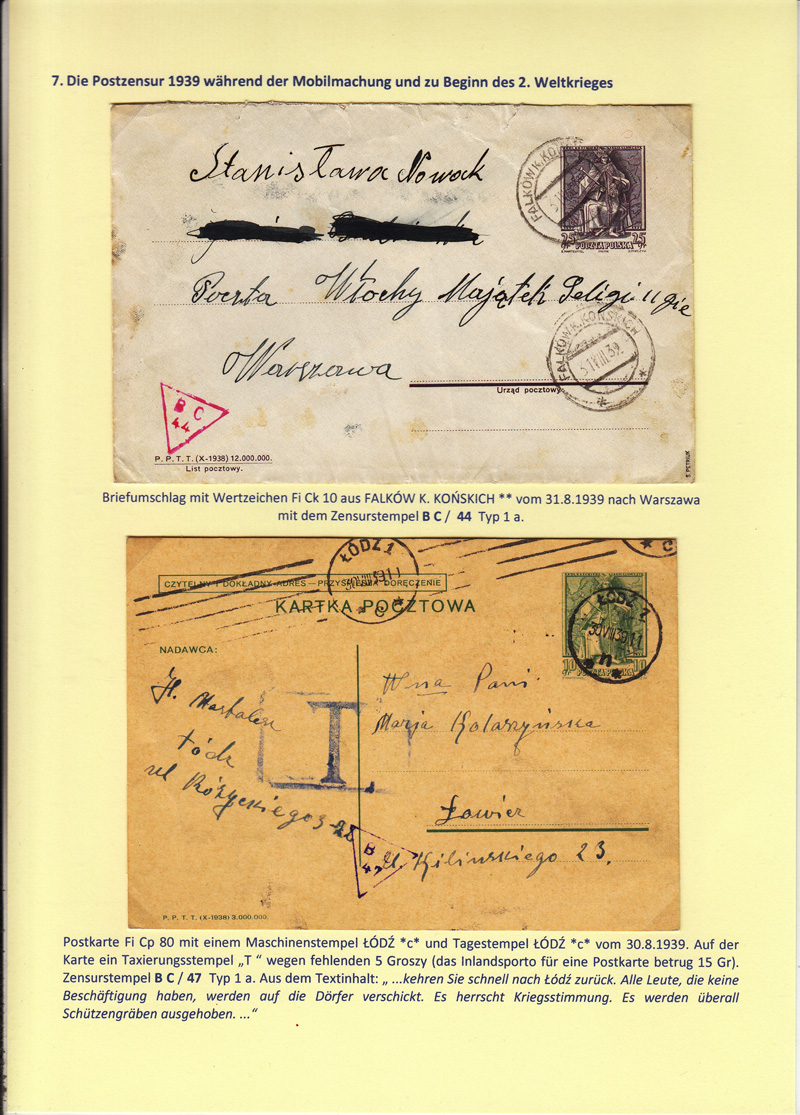 7. Die Postzensur 1939 während der Mobilmachung und zu Beginn des 2. Weltkrieges
Stanisława Nowak
FALKÓW K. KOŃSKICH
25 25
gr POCZTA POLSKA gr
Poczta Włochy Majątek
FALKÓW K. KOŃSKICH
31 VIII 39
Warszawa
Urząd pocztowy
B C
44
P. P. T. T. (X-1938) 12.000.000.
List pocztowy.
S. PETRUK
Briefumschlag mit Wertzeichen Fi Ck 10 aus FALKÓW K. KOŃSKICH ** vom 31.8.1939 nach Warszawa
mit dem Zensurstempel B C / 44 Typ 1 a.
ŁÓDŹ 1
30 VIII 39 11
* c *
* C
CZYTELNY I DOKŁADNY ADRES — PRZYSPIESZA DORĘCZENIE
KARTKA POCZTOWA
ŁÓDŹ 1
30 VIII 39 11
10 10
gr POCZTA POLSKA gr
NADAWCA:
Wna Pani
Marja
T
Łódź
ul
B
47
Kilinskiego 23.
P. P. T. T. (X-1938) 3.000.000.
Postkarte Fi Cp 80 mit einem Maschinenstempel ŁÓDŹ *c* und Tagestempel ŁÓDŹ *c* vom 30.8.1939. Auf der
Karte ein Taxierungsstempel „T “ wegen fehlenden 5 Groszy (das Inlandsporto für eine Postkarte betrug 15 Gr).
Zensurstempel B C / 47 Typ 1 a. Aus dem Textinhalt: „ ...kehren Sie schnell nach Łódź zurück. Alle Leute, die keine
Beschäftigung haben, werden auf die Dörfer verschickt. Es herrscht Kriegsstimmung. Es werden überall
Schützengräben ausgehoben. ...“